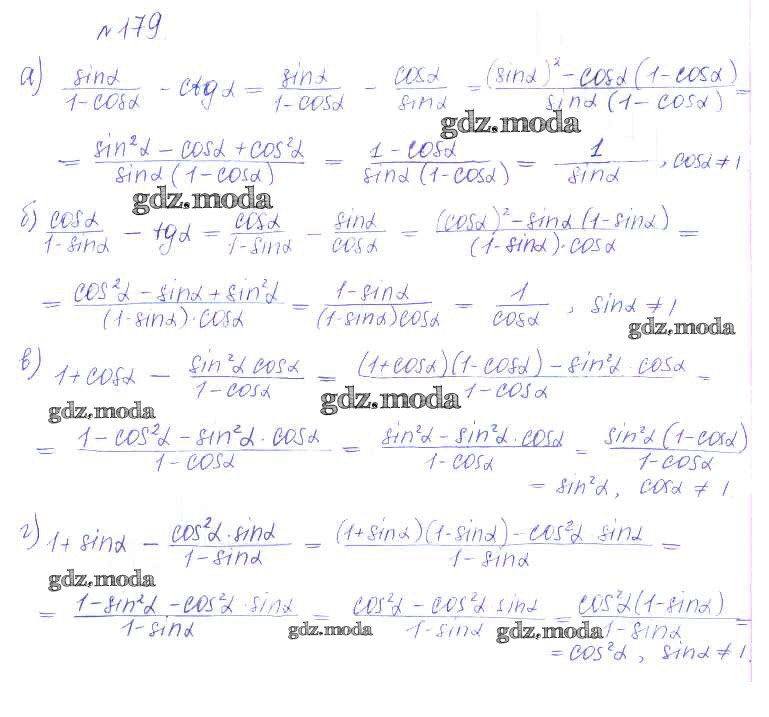 №179
а) sinα/(1-cosα) - ctgα = sinα/(1-cosα) - cosα/sinα = ((sinα)² - cosα(1-cosα))/(sinα(1-cosα)) =
gdz.moda
= (sin²α - cosα + cos²α)/(sinα(1-cosα)) = (1-cosα)/(sinα(1-cosα)) = 1/sinα, cosα≠1
gdz.moda
б) cosα/(1-sinα) - tgα = cosα/(1-sinα) - sinα/cosα = ((cosα)² - sinα(1-sinα))/((1-sinα)·cosα) =
= (cos²α - sinα + sin²α)/((1-sinα)·cosα) = (1-sinα)/((1-sinα)cosα) = 1/cosα, sinα≠1
gdz.moda
в) 1+cosα - (sin²α cosα)/(1-cosα) = ((1+cosα)(1-cosα) - sin²α·cosα)/(1-cosα) =
gdz.moda gdz.moda
= (1-cos²α - sin²α·cosα)/(1-cosα) = (sin²α - sin²α·cosα)/(1-cosα) = (sin²α(1-cosα))/(1-cosα)
= sin²α, cosα≠1
г) 1+sinα - (cos²α·sinα)/(1-sinα) = ((1+sinα)(1-sinα) - cos²α sinα)/(1-sinα) =
gdz.moda
= (1-sin²α - cos²α·sinα)/(1-sinα) = (cos²α - cos²α sinα)/(1-sinα) = (cos²α(1-sinα))/(1-sinα) =
gdz.moda gdz.moda
= cos²α, sinα≠1